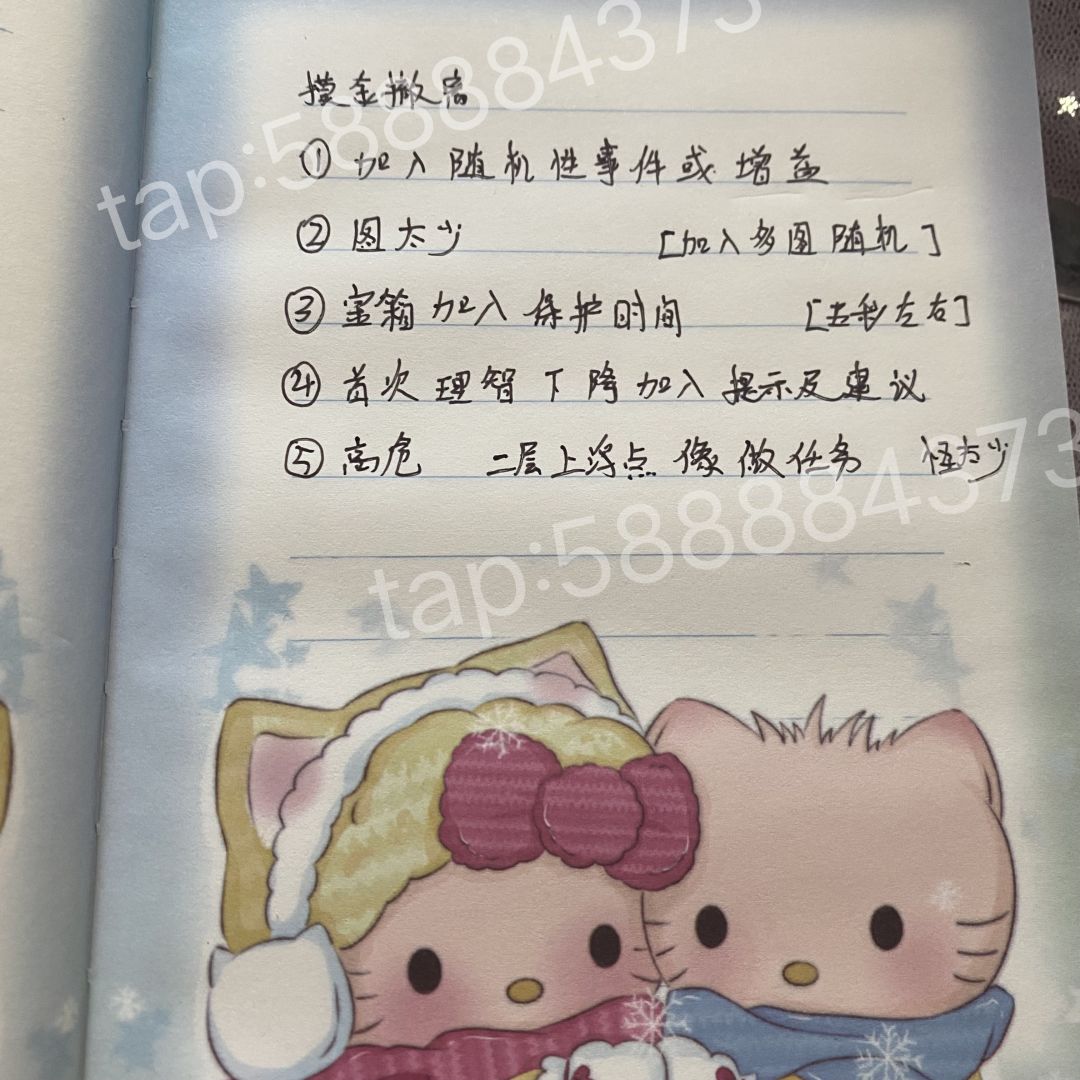 摸金撤离
① 加入随机性事件或增益
② 图太少 [加入多图随机]
③ 宝箱加入保护时间 [五秒左右]
④ 首次理智下降加入提示及建议
⑤ 高危 二层上浮点像做任务 怪太少
tap:588884373
tap:588884373